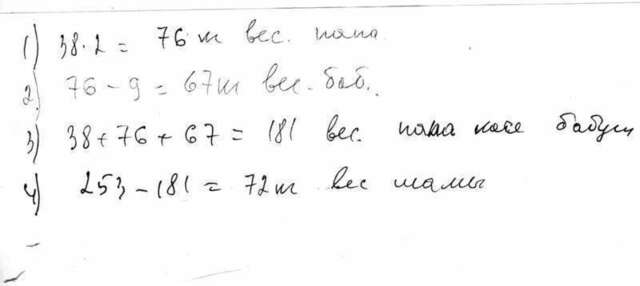 1) 38·2 = 76 т вес. папа
2) 76 - 9 = 67т вес. баб.
3) 38 + 76 + 67 = 181 вес. папа косе бабуш
4) 253 - 181 = 72т вес мамы